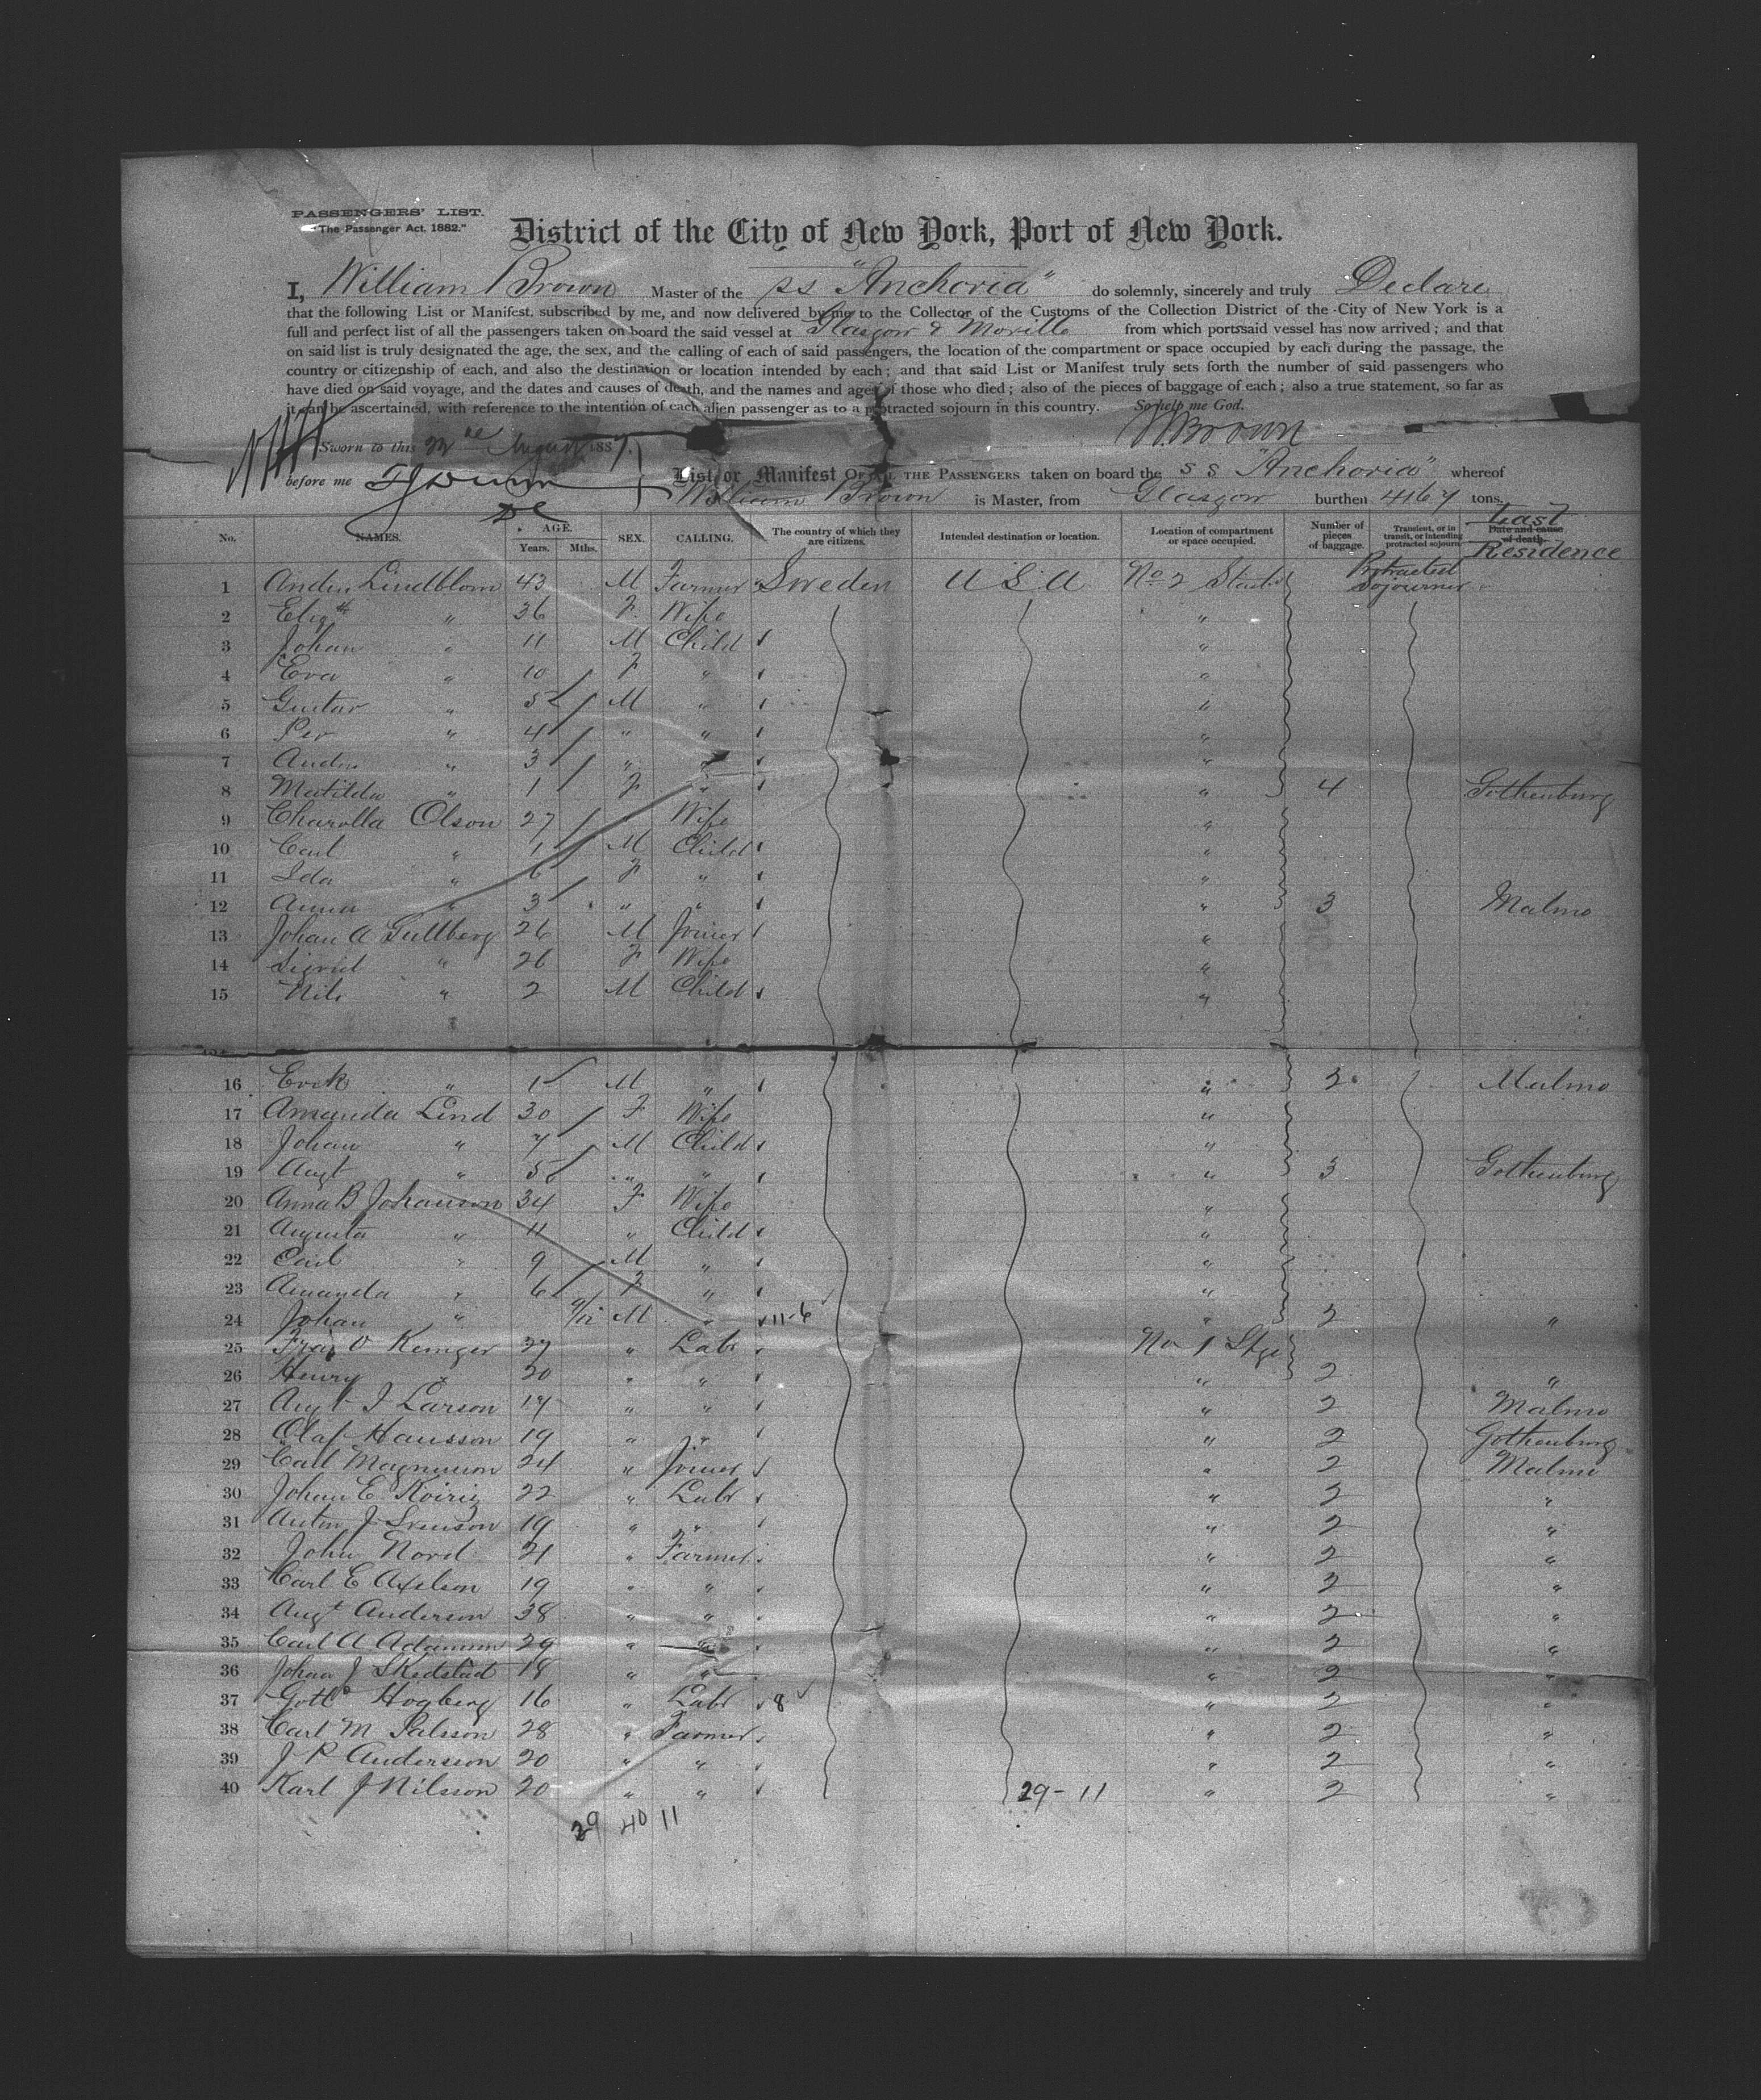 PASSENGERS' LIST.
"The Passenger Act, 1882."
District of the City of New York, Port of New York.
I, William Brown Master of the ss "Anchoria" do solemnly, sincerely and truly Declare
that the following List or Manifest, subscribed by me, and now delivered by me to the Collector of the Customs of the Collection District of the City of New York is a
full and perfect list of all the passengers taken on board the said vessel at Glasgow & Moville from which ports said vessel has now arrived; and that
on said list is truly designated the age, the sex, and the calling of each of said passengers, the location of the compartment or space occupied by each during the passage, the
country or citizenship of each, and also the destination or location intended by each; and that said List or Manifest truly sets forth the number of said passengers who
have died on said voyage, and the dates and causes of death, and the names and ages of those who died; also of the pieces of baggage of each; also a true statement, so far as
it can be ascertained, with reference to the intention of each alien passenger as to a protracted sojourn in this country. So help me God.
WBrown
Sworn to this August 1887.
before me
List or Manifest OF ALL THE PASSENGERS taken on board the S S "Anchoria" whereof
William Brown is Master, from Glasgow burthen 4167 tons.
No. NAMES. AGE. Years. Mths. SEX. CALLING. The country of which they are citizens. Intended destination or location. Location of compartment or space occupied. Number of pieces of baggage. Transient, or in transit, or intending protracted sojourn Date and cause of death. Last Residence
1 Lindblom 43 M Farmer Sweden U S A No 2 Protracted Sojourner
2 Eliz " 36 F Wife "
3 Johan " 11 M Child "
4 Eva " 10 F " "
5 Gustav " 5 M " "
6 Per " 4 " " "
7 " 3 " " "
8 Matilda " 1 F " " 4 Gothenburg
9 Charolla Olson 27 " Wife "
10 Carl " M Child "
11 Ida " 6 F " "
12 Anna " 3 " " " 3 Malmo
13 Johan A Gullberg 26 M Joiner "
14 Sigrid " 26 F Wife "
15 Nils " 2 M Child "
16 Erik " 1 M " " 3 Malmo
17 Amanda Lind 30 F Wife "
18 Johan " 7 M Child "
19 Augt " 5 " " " 3 Gothenburg
20 Anna B Johanson 34 F Wife "
21 Augusta " 11 " Child "
22 Carl " 9 M " "
23 Amanda " 6 F " "
24 Johan " M " 11-6 " 2 "
25 O 27 " Labr No 1 Stge
26 Henry " 20 " " " 2 "
27 Augt J Larson 19 " " " 2 Malmo
28 Olaf Hansson 19 " " " 2 Gothenburg
29 Carl Magnuson 24 " Joiner " 2 Malmo
30 Johan E 22 " Labr " 2 "
31 Anton J Svenson 19 " " " 2 "
32 John Nord 21 " Farmer " 2 "
33 Carl E Axelson 19 " " " 2 "
34 Augt Anderson 38 " " " 2 "
35 Carl A Adamson 29 " " " 2 "
36 Johan J Skedstad 18 " " " 2 "
37 Hogberg 16 " Labr 8 " 2 "
38 Carl M Palsson 28 " Farmer " 2 "
39 J P Anderson 20 " " " 2 "
40 Karl J Nilsson 20 " " 29-11 " 2 "
29 40 11